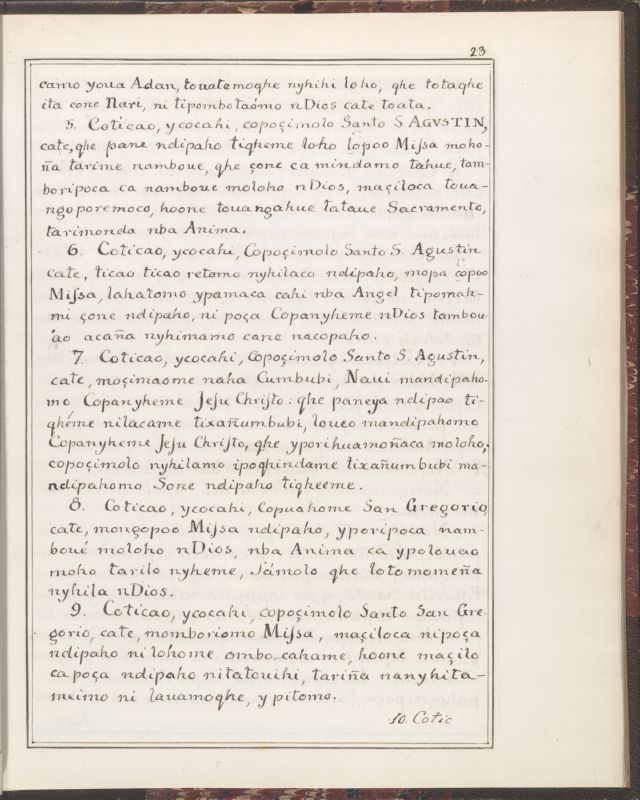 23
camo youa Adan, touatemoqhe nyhihi loho, qhe totaqhe
ita cone Nari, ni tipombotaómo nDios cate toata.
5. Coticao, ycocahi, copoçimolo Santo S. AGVSTIN,
cate, qhe pane ndipaho tiqheme loho lopoo Miſsa moho-
ña tarime namboue, qhe çone ca mindamo tahue, tam-
boripoca ca namboue moloho nDios, maçiloca toua-
ngoporemoco, hoone touangahue tataue Sacramento,
tarimonda nba Anima.
6. Coticao, ycocahi, Copoçimolo Santo S. Agustin
cate, ticao ticao retomo nyhilaco ndipaho, mopa copoo
Miſsa, lahatomo ypamaca cahi nba Angel tipomah-
mi çone ndipaho, ni poça Copanyheme nDios tambou-
ào acaña nyhimamo cane nacopaho.
7. Coticao, ycocahi, Copoçimolo Santo S. Agustin,
cate, moçimaome naha Cumbubi, Naui mandipaho-
mo Copanyheme Jeſu Chriſto: qhe paneya ndipao ti-
qhéme nilacame tixañumbubi, loueo mandipahomo
Copanyheme Jeſu Chriſto, qhe yporihuamoñaca moloho,
copoçimolo nyhilamo ipoqhindame tixañumbubi ma-
ndipahomo Sone ndipaho tiqheeme.
8. Coticao, ycocahi, Copuahome San Gregorio,
cate, mongopoo Miſsa ndipaho, yporipoca nam-
boué moloho nDios, nba Anima ca ypolouao
moho tarilo nyheme, Sámolo qhe lotomomeña
nyhila nDios.
9. Coticao, ycocahi, copoçimolo Santo San Gre-
gorio, cate, momboriomo Miſsa, maçiloca nipoça
ndipaho nilohome ombo cahame, hoone maçilo
capoça ndipaho nitatouihi, tariña nanyhita-
meimo ni lauamoqhe, y pitomo.
10. Cotic